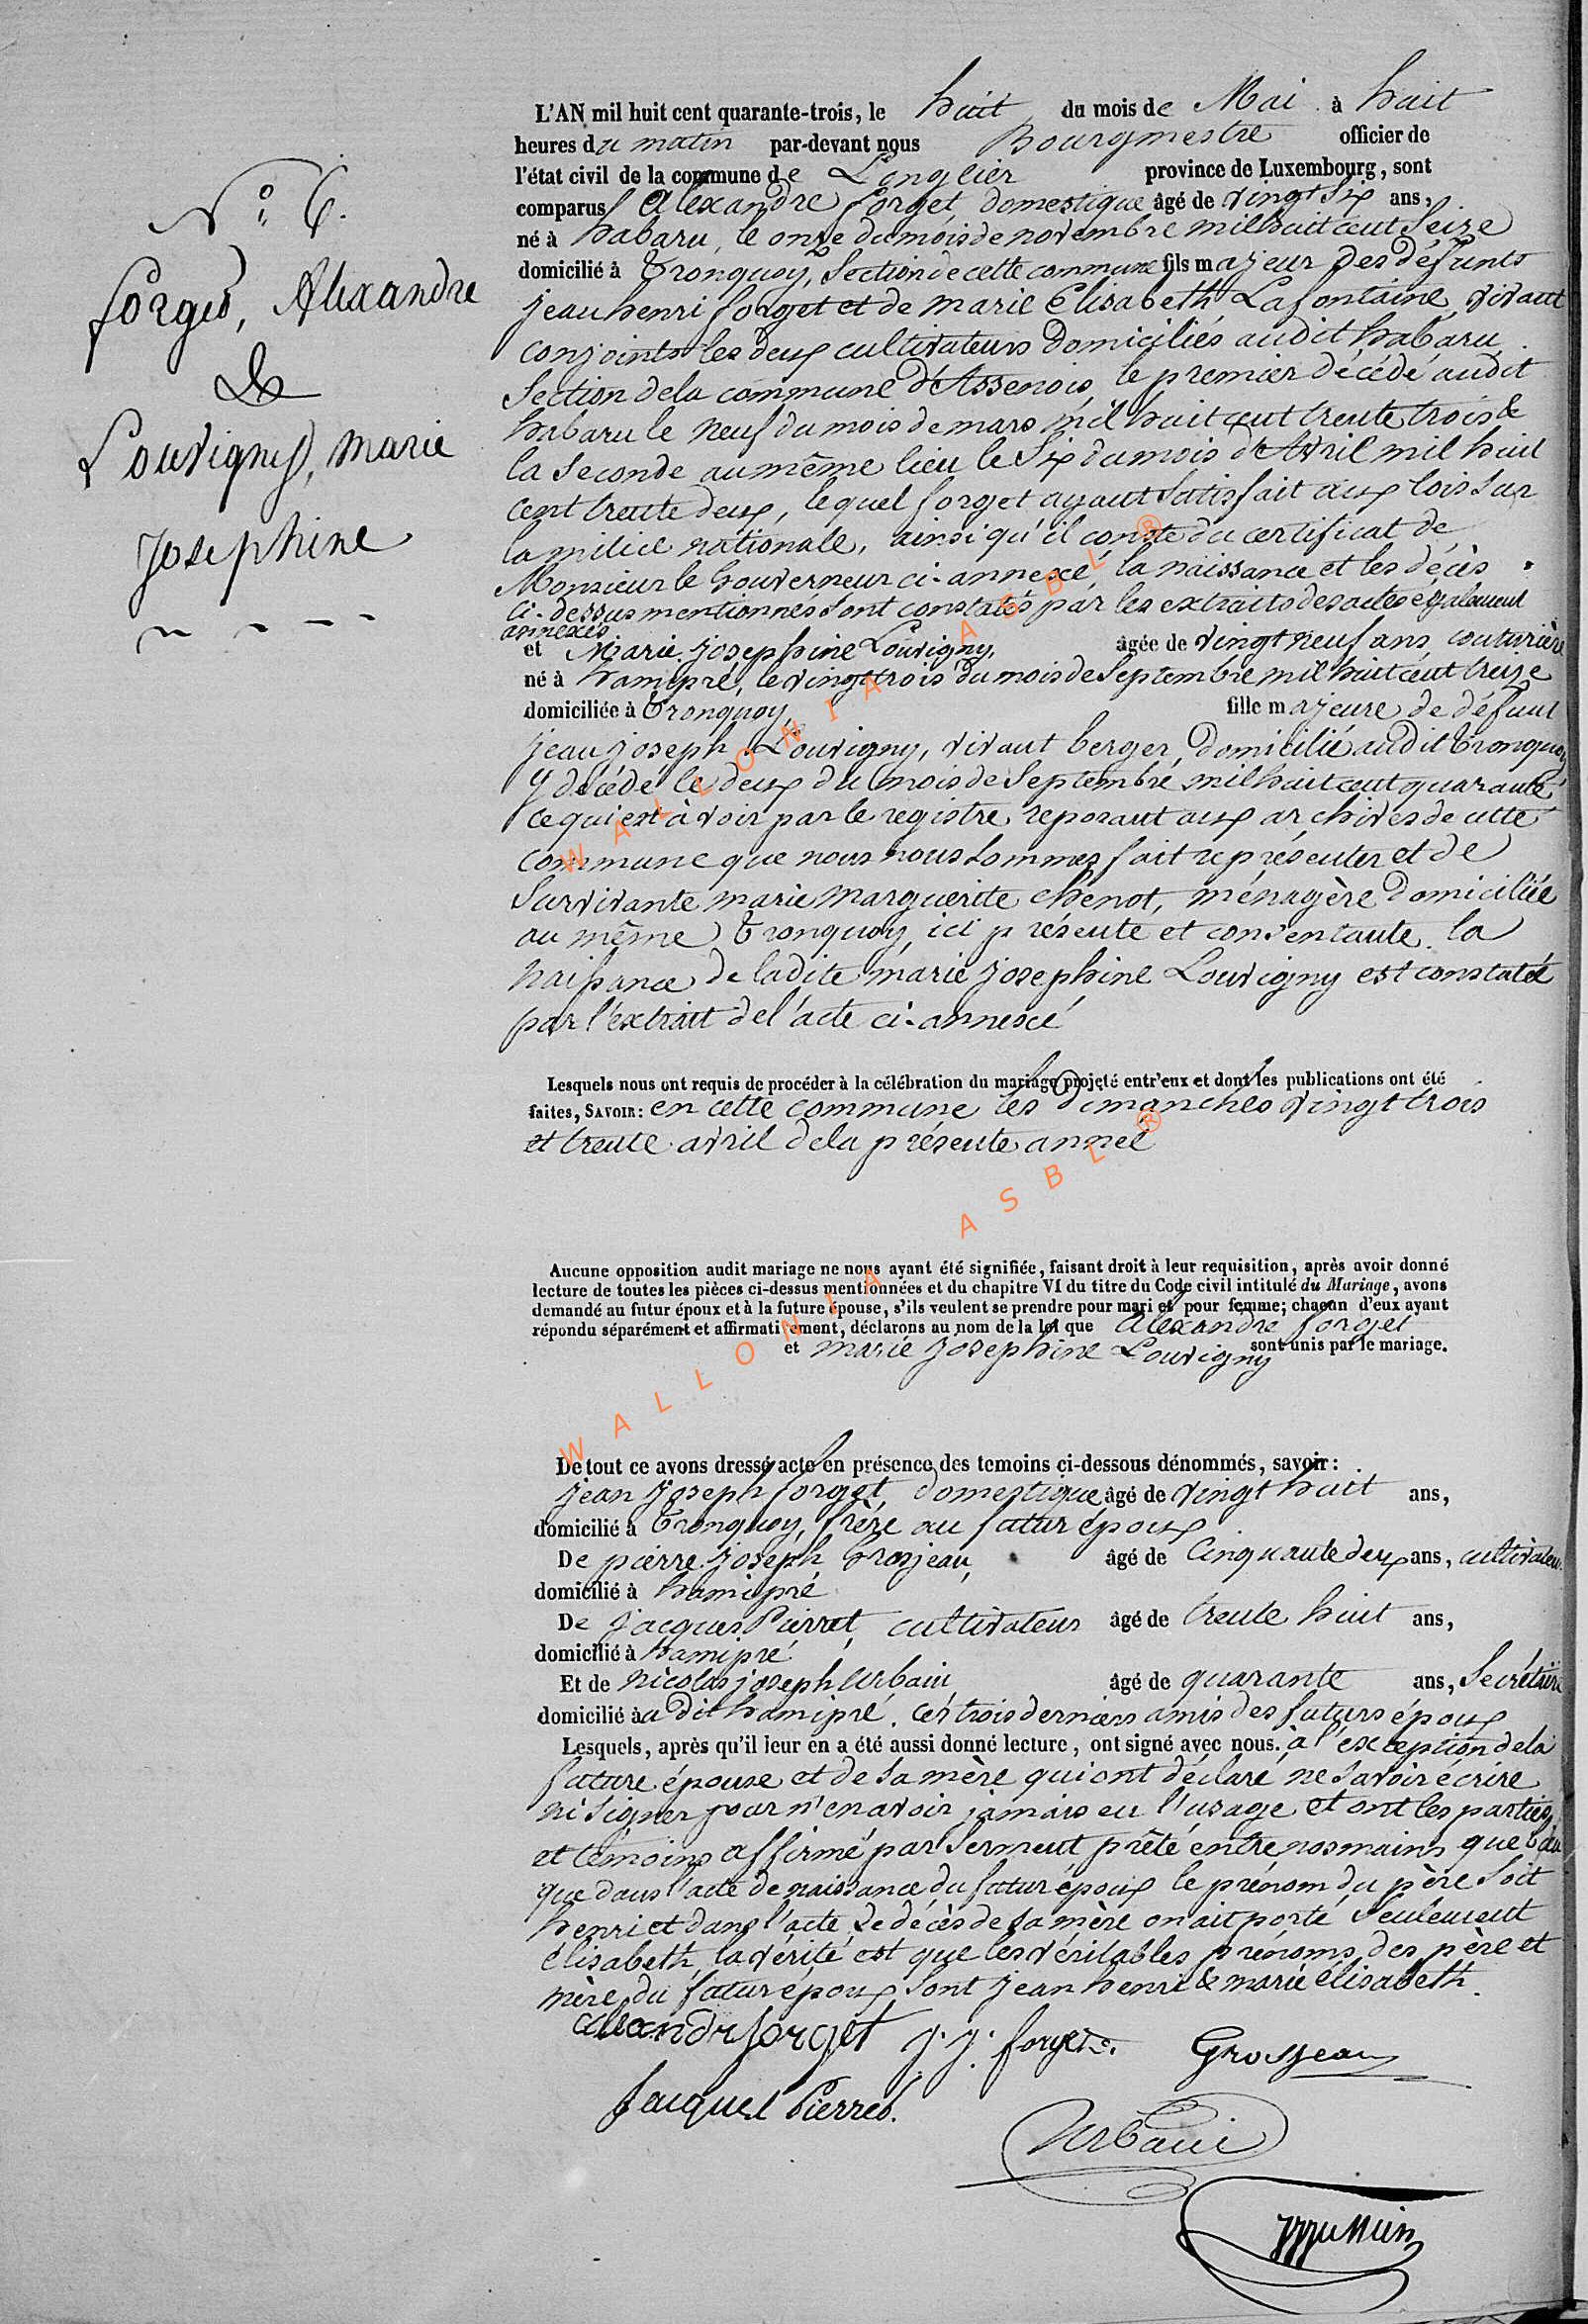 N.° 6.
forget, Alexandre
&
Louvigny, marie
Josephine
L'AN mil huit cent quarante-trois, le huit du mois de Mai à huit
heures du matin par-devant nous Bourgmestre officier de
l'état civil de la commune de Longlier province de Luxembourg, sont
comparus Alexandre forget, domestique âgé de vingt six ans,
né à habaru, le onze du mois de novembre mil huit cent Seize
domicilié à Tronquoy, Section de cette commune fils majeur des défunts
jean henri forget et de marie Elisabeth Lafontaine, vivant
conjoints les deux cultivateurs domiciliés audit habaru
Section de la commune d'Assenois, le premier décédé audit
habaru le neuf du mois de mars mil huit cent trente trois &
la seconde au même lieu le Six du mois d'Avril mil huit
cent trente deux, lequel forget ayant satisfait aux lois sur
la milice nationale, ainsi qu'il conste du certificat de
Monsieur le Gouverneur ci-annexé, la naissance et les décès
ci-dessus mentionnés sont constatés par les extraits des actes également
annexés
et Marie Josephine Louvigny, âgée de vingt neuf ans, couturière
né à hamipré, le vingt trois du mois de Septembre mil huit cent treize
domiciliée à Tronquoy, fille majeure de défunt
jean joseph Louvigny, vivant berger, domicilié audit Tronquoy
y décédé le deux du mois de Septembre mil huit cent quarante,
ce qui est à voir par le registre reposant aux archives de cette
commune que nous nous sommes fait représenter et de
Survivante marie Marguerite chenot, ménagère domiciliée
au même Tronquoy, ici présente et consentante. la
naissance de ladite marie josephine Louvigny est constatée
par l'extrait de l'acte ci-annexé
Lesquels nous ont requis de procéder à la célébration du mariage projeté entr'eux et dont les publications ont été
faites, SAVOIR: en cette commune les Dimanches vingt trois
et trente avril de la présente année
Aucune opposition audit mariage ne nous ayant été signifiée, faisant droit à leur requisition, après avoir donné
lecture de toutes les pièces ci-dessus mentionnées et du chapitre VI du titre du Code civil intitulé du Mariage, avons
demandé au futur époux et à la future épouse, s'ils veulent se prendre pour mari et pour femme; chacun d'eux ayant
répondu séparément et affirmativement, déclarons au nom de la loi que Alexandre forget
et marie josephine Louvigny sont unis par le mariage.
De tout ce avons dressé acte en présence des temoins ci-dessous dénommés, savoir:
jean joseph forget, domestique âgé de vingt huit ans,
domicilié à Tronquoy, frère au futur époux
De pierre joseph Grosjean, âgé de Cinquante deux ans, cultivateur
domicilié à hamipré
De jacques Pierret, cultivateur âgé de trente huit ans,
domicilié à hamipré
Et de nicolas joseph Urbain âgé de quarante ans, Secrétaire
domicilié à a Dit hamipré. ces trois derniers amis des futurs époux
Lesquels, après qu'il leur en a été aussi donné lecture, ont signé avec nous. à l'exception de la
future épouse et de sa mère qui ont déclaré ne savoir écrire
ni signer pour n'en avoir jamais eu l'usage et ont les parties
et témoins affirmé par serment prêté entre nos mains que
que dans l'acte de naissance du futur époux le prénom du père soit
henri et dans l'acte de décès de sa mère on ait porté seulement
elisabeth, la vérité est que les véritables prénoms des père et
mère du futur époux sont jean henri & marie élisabeth.
alexandre forget j. j. forget. Grosjean
Jacques Pierret.
Urbain
WALLONIA ASBL ®
WALLONIA ASBL ®